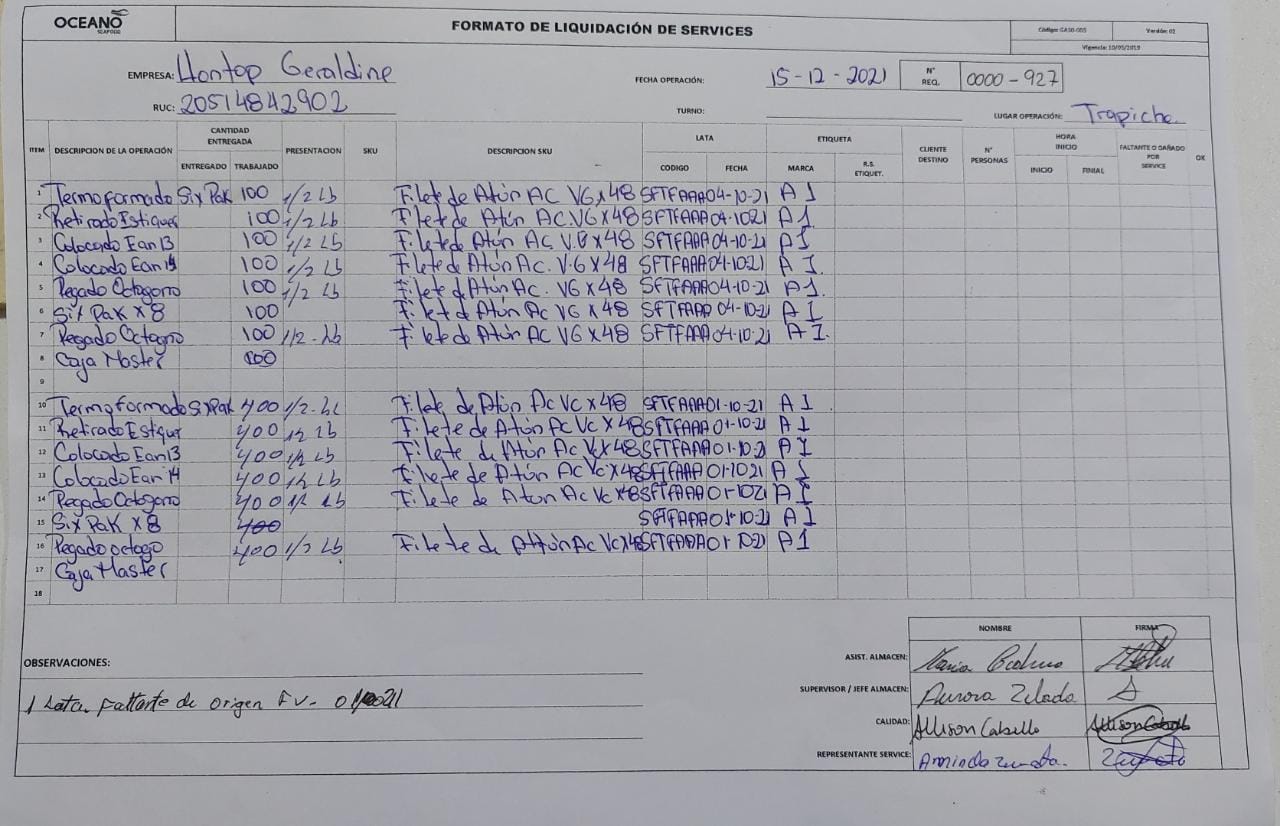 OCEANO
SEAFOOD
FORMATO DE LIQUIDACIÓN DE SERVICES
Código: GASO-005 Versión: 02
Vigencia: 10/05/2019
EMPRESA: Hontop Geraldine FECHA OPERACIÓN: 15-12-2021 N° REQ. 0000-927
RUC: 20514842902 TURNO: LUGAR OPERACIÓN: Trapiche
ITEM DESCRIPCION DE LA OPERACIÓN CANTIDAD ENTREGADA PRESENTACION SKU DESCRIPCION SKU LATA ETIQUETA CLIENTE DESTINO N° PERSONAS HORA INICIO FALTANTE O DAÑADO POR SERVICE OK
ENTREGADO TRABAJADO CODIGO FECHA MARCA R.S. ETIQUET. INICIO FINIAL
1 Termoformado Six Pak 100 1/2 Lb Filete de Atún AC VGX48 SFTFAAA 04-10-21 A1
2 Retirado Estiquer 100 1/2 Lb Filete de Atún AC.VGX48 SFTFAAA 04-1021 A1
3 Colocado Ean13 100 1/2 Lb Filete de Atún Ac V.GX48 SFTFAAA 04-10-21 A1
4 Colocado Ean14 100 1/2 Lb Filete de Atún Ac. V.GX48 SFTFAAA 04-10-21 A1.
5 Pegado Octogorro 100 1/2 Lb Filete de Atún Ac. VGX48 SFTFAAA 04-10-21 A1.
6 Six Pak X 8 100 Filete de Atún Ac VG X48 SFTFAAA 04-10-21 A1
7 Pegado Octogno 100 1/2-Lb Filete de Atún Ac VG X48 SFTFAAA 04-10-21 A1.
8 Caja Master 100
9
10 Termoformado SixPak 400 1/2-Lb Filete de Atún Ac Vc X48 SFTFAAA 01-10-21 A1
11 Retirado Estiquer 400 1/2 Lb Filete de Atún Ac Vc X48 SFTFAAA 01-10-21 A1
12 Colocado Ean13 400 1/2 Lb Filete de Atún Ac VcX48 SFTFAAA 01-10-21 A1
13 Colocado Ean 14 400 1/2 Lb Filete de Atún Ac Vc X48 SFTFAAA 01-1021 A1
14 Pegado Octogorro 400 1/2 Lb Filete de Atún Ac Vc X48 SFTFAAA 01-1021 A1
15 Six Pak X 8 400 SFTFAAA 01-10-21 A1
16 Pegado octogo 400 1/2 Lb Filete de Atún Ac Vc X48 SFTFAAA 01-1021 A1
17 Caja Master
18
NOMBRE FIRMA
OBSERVACIONES: ASIST. ALMACEN: Maria
1 Lata Faltante de origen FV-
SUPERVISOR / JEFE ALMACEN: Aurora Zelada
CALIDAD: Allison Cabello Allison Cabello
REPRESENTANTE SERVICE: Arminda